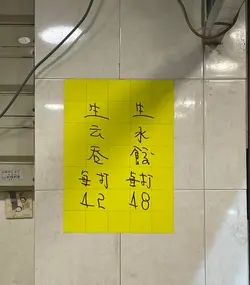 生水餃每打48
生云吞每打42